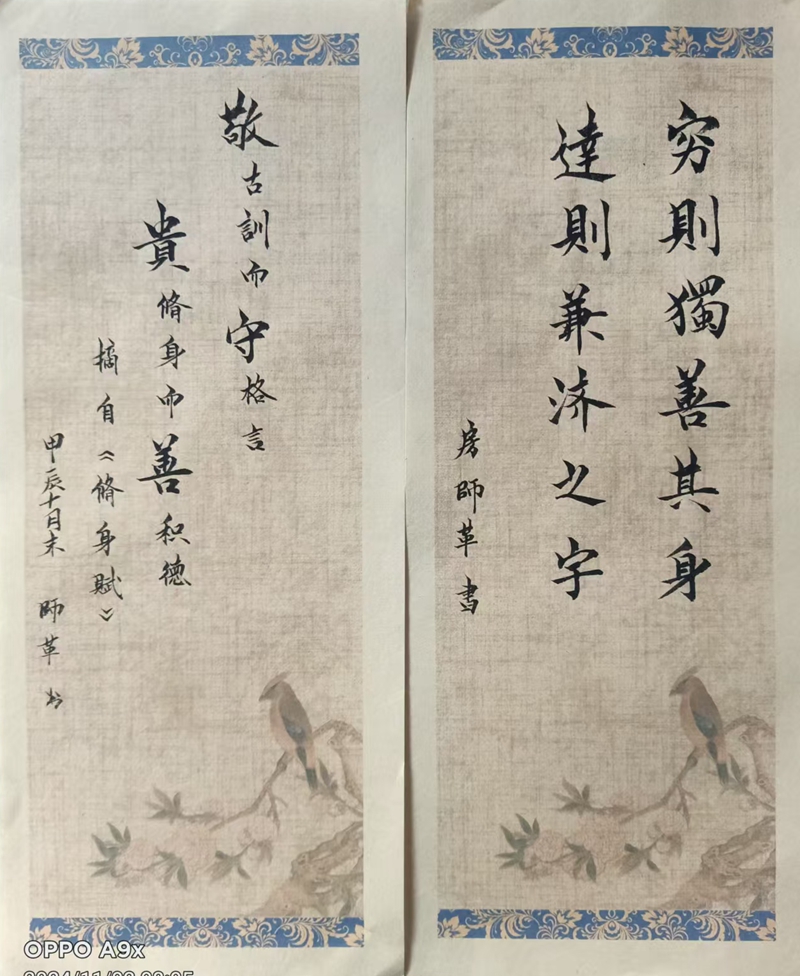 穷則獨善其身
達則兼济之字
房師革書
敬古訓而守格言
貴脩身而善积德
摘自《脩身賦》
甲辰十月末 師革书
OPPO A9x